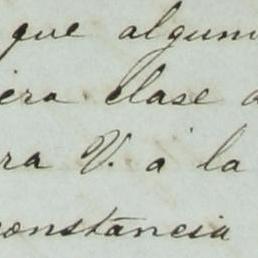 que algun
era clase
ra V. á la
constancia